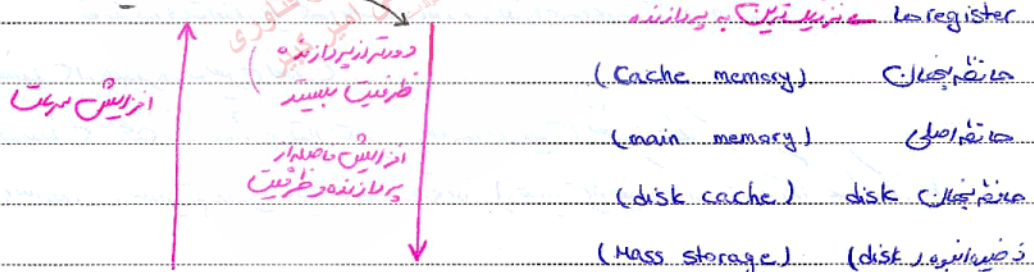 registerها ← نزدیکترین به پردازنده
حافظه پنهان (Cache memory)
حافظه اصلی (main memory)
حافظه پنهان disk (disk cache)
ذخیره انبوه (disk) (Mass storage)
دورتر از پردازنده
ظرفیت بیشتر
افزایش فاصله از
پردازنده و ظرفیت
افزایش سرعت